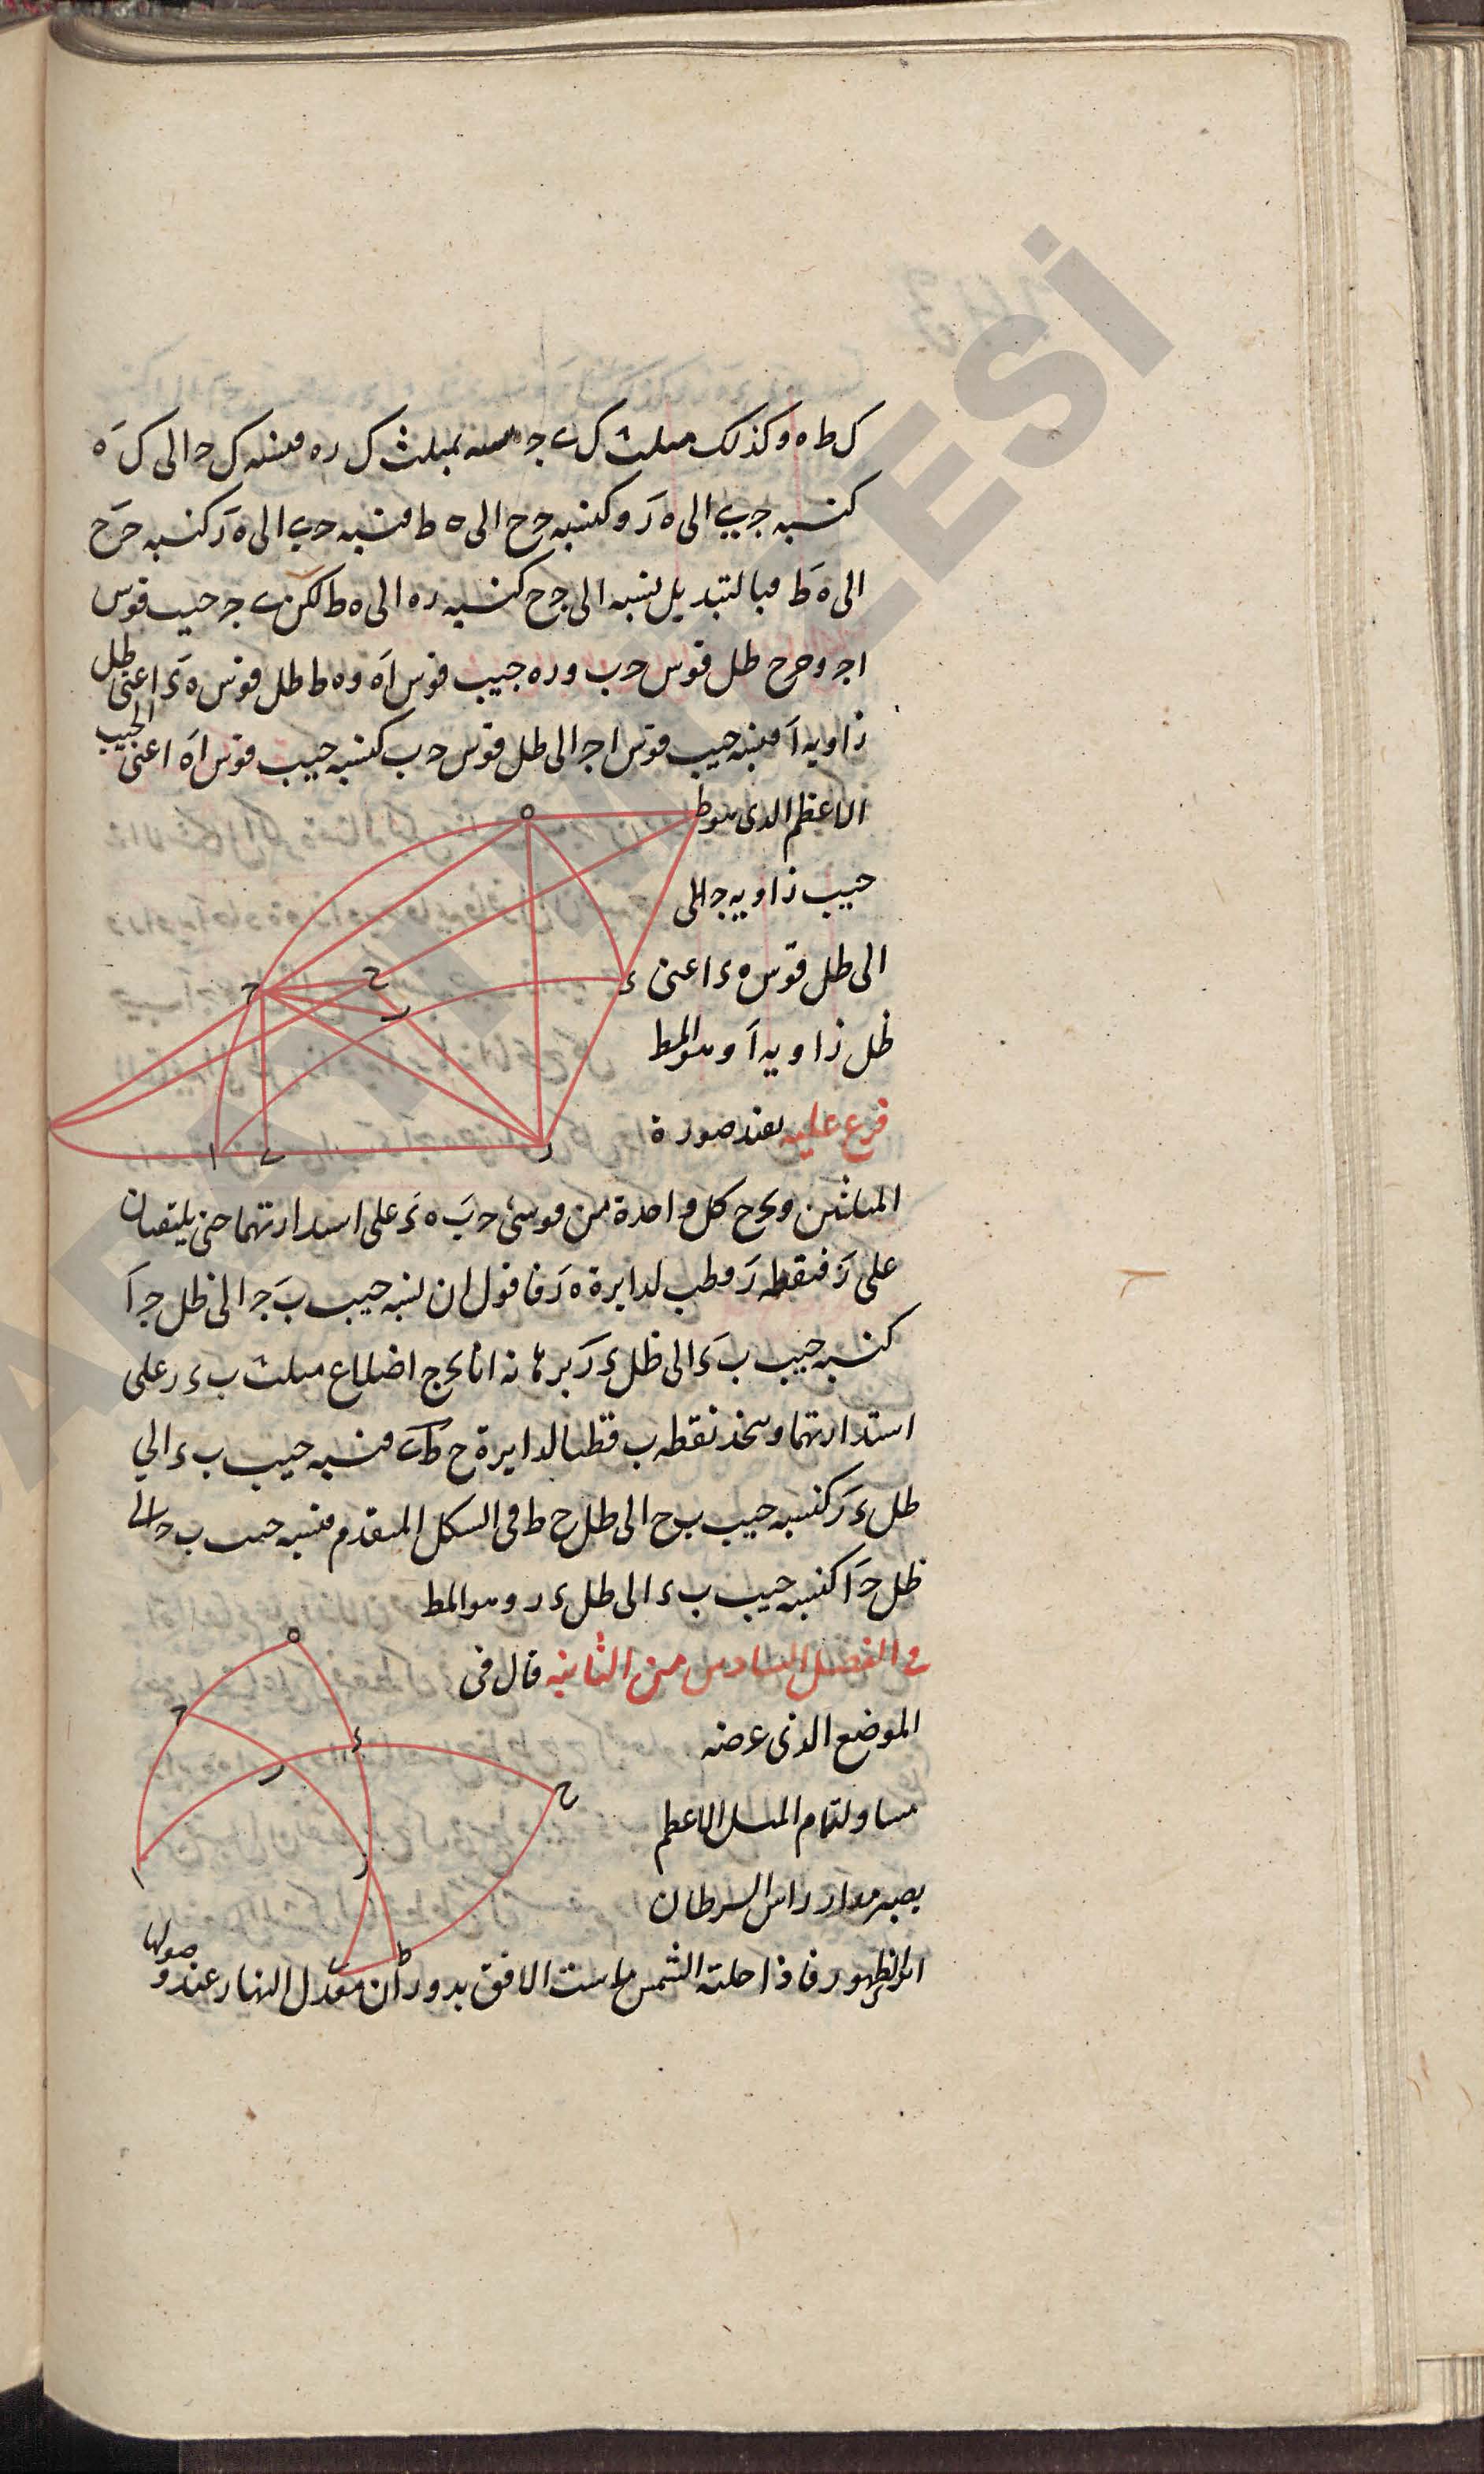 ك ط ه وكذلك مثلث ك ى ج شبيه بمثلث ك ر ه فنسبة ك ح الى ك ه
كنسبة ج ى الى ه ر وكنسبة ج ح الى ه ط فنسبة ج ى الى ه ر كنسبة ج ح
الى ه ط فبالتبديل نسبة الى ج ح كنسبة ر ه الى ه ط لكن ى ج جيب قوس
ا ج و ج ح ظل قوس ج ب و ر ه جيب قوس ا ه و ه ط ظل قوس ه ء اعنى ظل
زاوية ا فنسبة جيب قوس ا ج الى ظل قوس ج ب كنسبة جيب قوس ا ه اعنى الجيب
الاعظم الذى هو
جيب زاوية ج
الى ظل قوس ه ء اعنى
ظل زاوية ا وهو المط
فرع عليه نعيد صورة
المثلثين ونخرج كل واحدة من قوسى ج ب ه ء على استدارتهما حتى يلتقيان
على ر فنقطة ر قطب لدايرة ه ر فاقول ان نسبة جيب ب ج الى ظل ج ا
كنسبة جيب ب ء الى ظل ء ر برهانه انا نخرج اضلاع مثلث ب ء ر على
استدارتهما ونتخذ نقطة ب قطبا لدايرة ح ط ى فنسبة جيب ب ء الى
ظل ء ر كنسبة جيب ب ح الى ظل ح ط فى الشكل المتقدم فنسبة جيب ب ج الى
ظل ج ا كنسبة جيب ب ء الى ظل ء ر وهو المط
فى الفصل السادس من الثانية قال فى
الموضع الذى عرضه
مساو لتمام الميل الاعظم
يصير مدار راس السرطان
ابدى الظهور فاذا حلته الشمس ماست الافق بدوران معدل النهار عند وصولها
ه
ط
ح
ح
ر
ء
ا
ى
ر
ه
ح
ء
ر
ح
ا
ط
AMİESİ